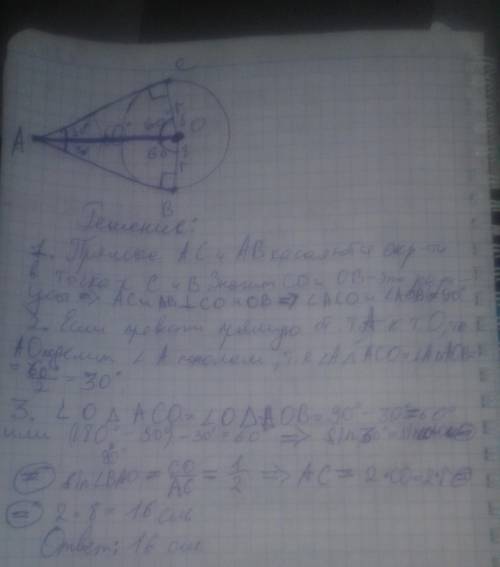 C
A 60° O
60
B
Решение:
1. Прямые AC и AB касаются окр-ти
в точках C и B. Значит CO и OB - это
=> AC и AB ⊥ CO и OB => ∠ACO = ∠ABO = 90°
2. Если провести прямую от т. A к т. O, то
AO делит ∠A пополам, т.е ∠A △ACO = ∠A △AOB =
= 60°/2 = 30°
3. ∠O △ ACO = ∠O △AOB = 90° - 30° = 60°
или (180° - 90°) - 30° = 60° => sin 30° =
90°
= sin∠BAO = CO/AC = 1/2 => AC = 2·CO = 2·8 =
= 2 · 8 = 16 см
Ответ: 16 см